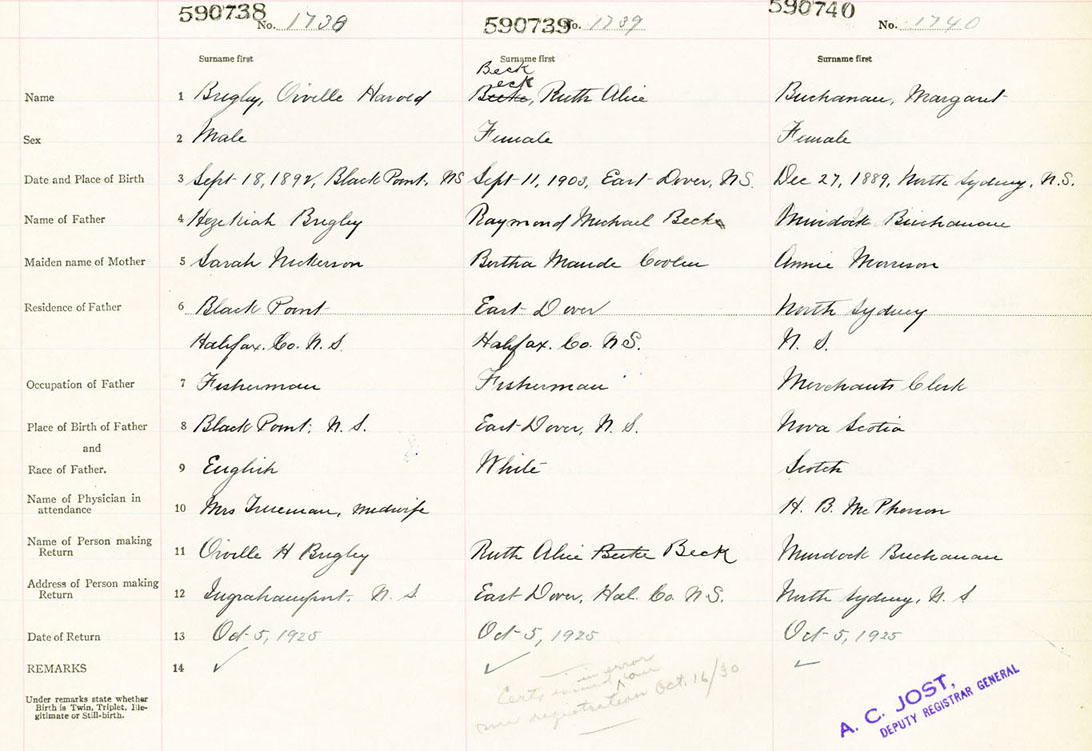 590738 No. 1738 590739 No. 1739 590740 No. 1740
Surname first Surname first Surname first
Beck
eck
Name 1 Brigley, Orville Harold Becke, Ruth Alice Buchanan, Margaret
Sex 2 Male Female Female
Date and Place of Birth 3 Sept 18, 1892, Black Point, NS Sept 11, 1903, East Dover, NS. Dec 27, 1889, North Sydney, N.S.
Name of Father 4 Hezekiah Brigley Raymond Michael Beck Murdock Buchanan
Maiden name of Mother 5 Sarah Nickerson Bertha Maude Coolen Annie Morrison
Residence of Father 6 Black Point East Dover North Sydney
Halifax. Co. N. S. Halifax. Co. N S. N. S.
Occupation of Father 7 Fisherman Fisherman Merchants Clerk
Place of Birth of Father 8 Black Point, N. S. East Dover, N. S. Nova Scotia
and
Race of Father. 9 English White Scotch
Name of Physician in
attendance 10 Mrs Trueman, midwife H. B. McPherson
Name of Person making
Return 11 Orville H Brigley Ruth Alice Becke Beck Murdock Buchanan
Address of Person making
Return 12 Ingrahamport, N. S East Dover, Hal. Co. N.S. North Sydney, N. S
Date of Return 13 Oct 5, 1925 Oct 5, 1925 Oct 5, 1925
REMARKS 14 ✓ ✓ ✓
in error
Cert. issued on
registration Oct. 16/30
Under remarks state whether
Birth is Twin, Triplet, Ille-
gitimate or Still-birth.
A. C. JOST,
DEPUTY REGISTRAR GENERAL